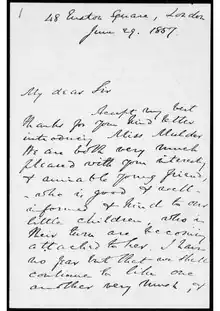 48 Euston Square, London
June 29. 1867.
My dear Sir
Accept my best
thanks for your kind letter
introducing Miss Mulder
We are both very much
pleased with your interesting
& amiable young friend
– who is good & well-
informed & kind to our
little children, who in
their turn are becoming
attached to her. I have
no fear but that we shall
continue to like one
another very much, &